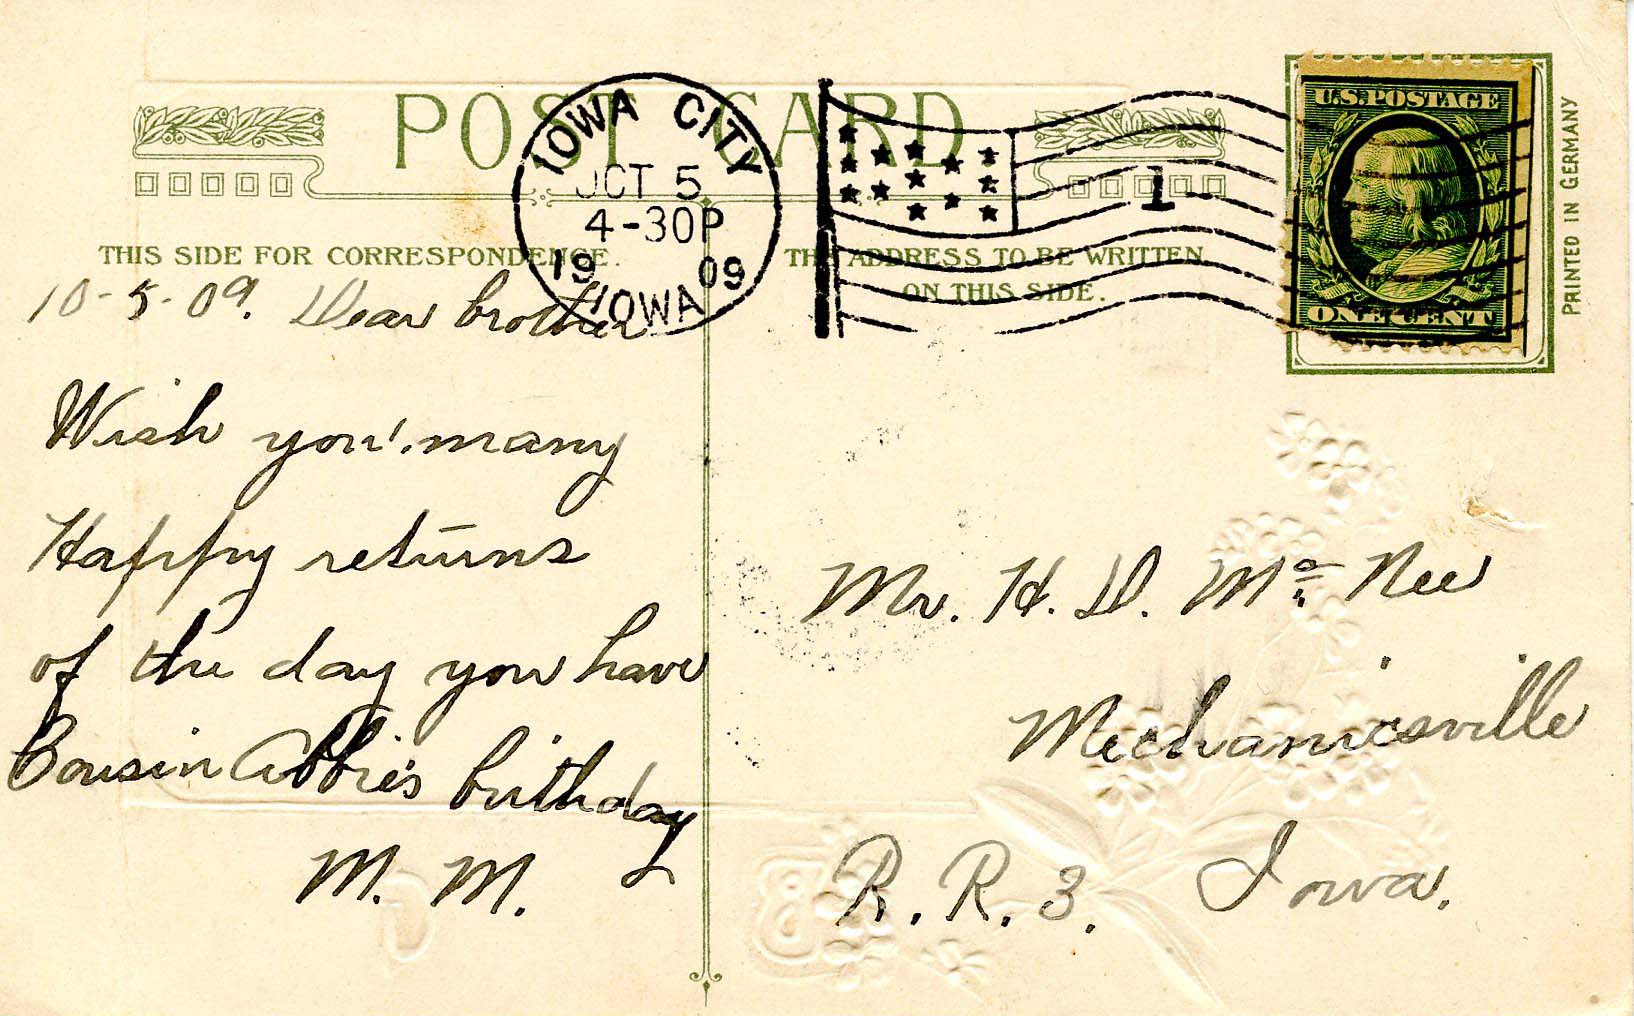 POST CARD
IOWA CITY
OCT 5
4-30P
1909
IOWA
1
U.S. POSTAGE
ONE CENT
PRINTED IN GERMANY
THIS SIDE FOR CORRESPONDENCE.
THE ADDRESS TO BE WRITTEN
ON THIS SIDE.
10-5-09. Dear brother
Wish you! many
Happy returns
of the day you have
Cousin Abbie's birthday
M. M.
Mr. H. D. Mc Nee
Mechanicsville
R. R. 3. Iowa.